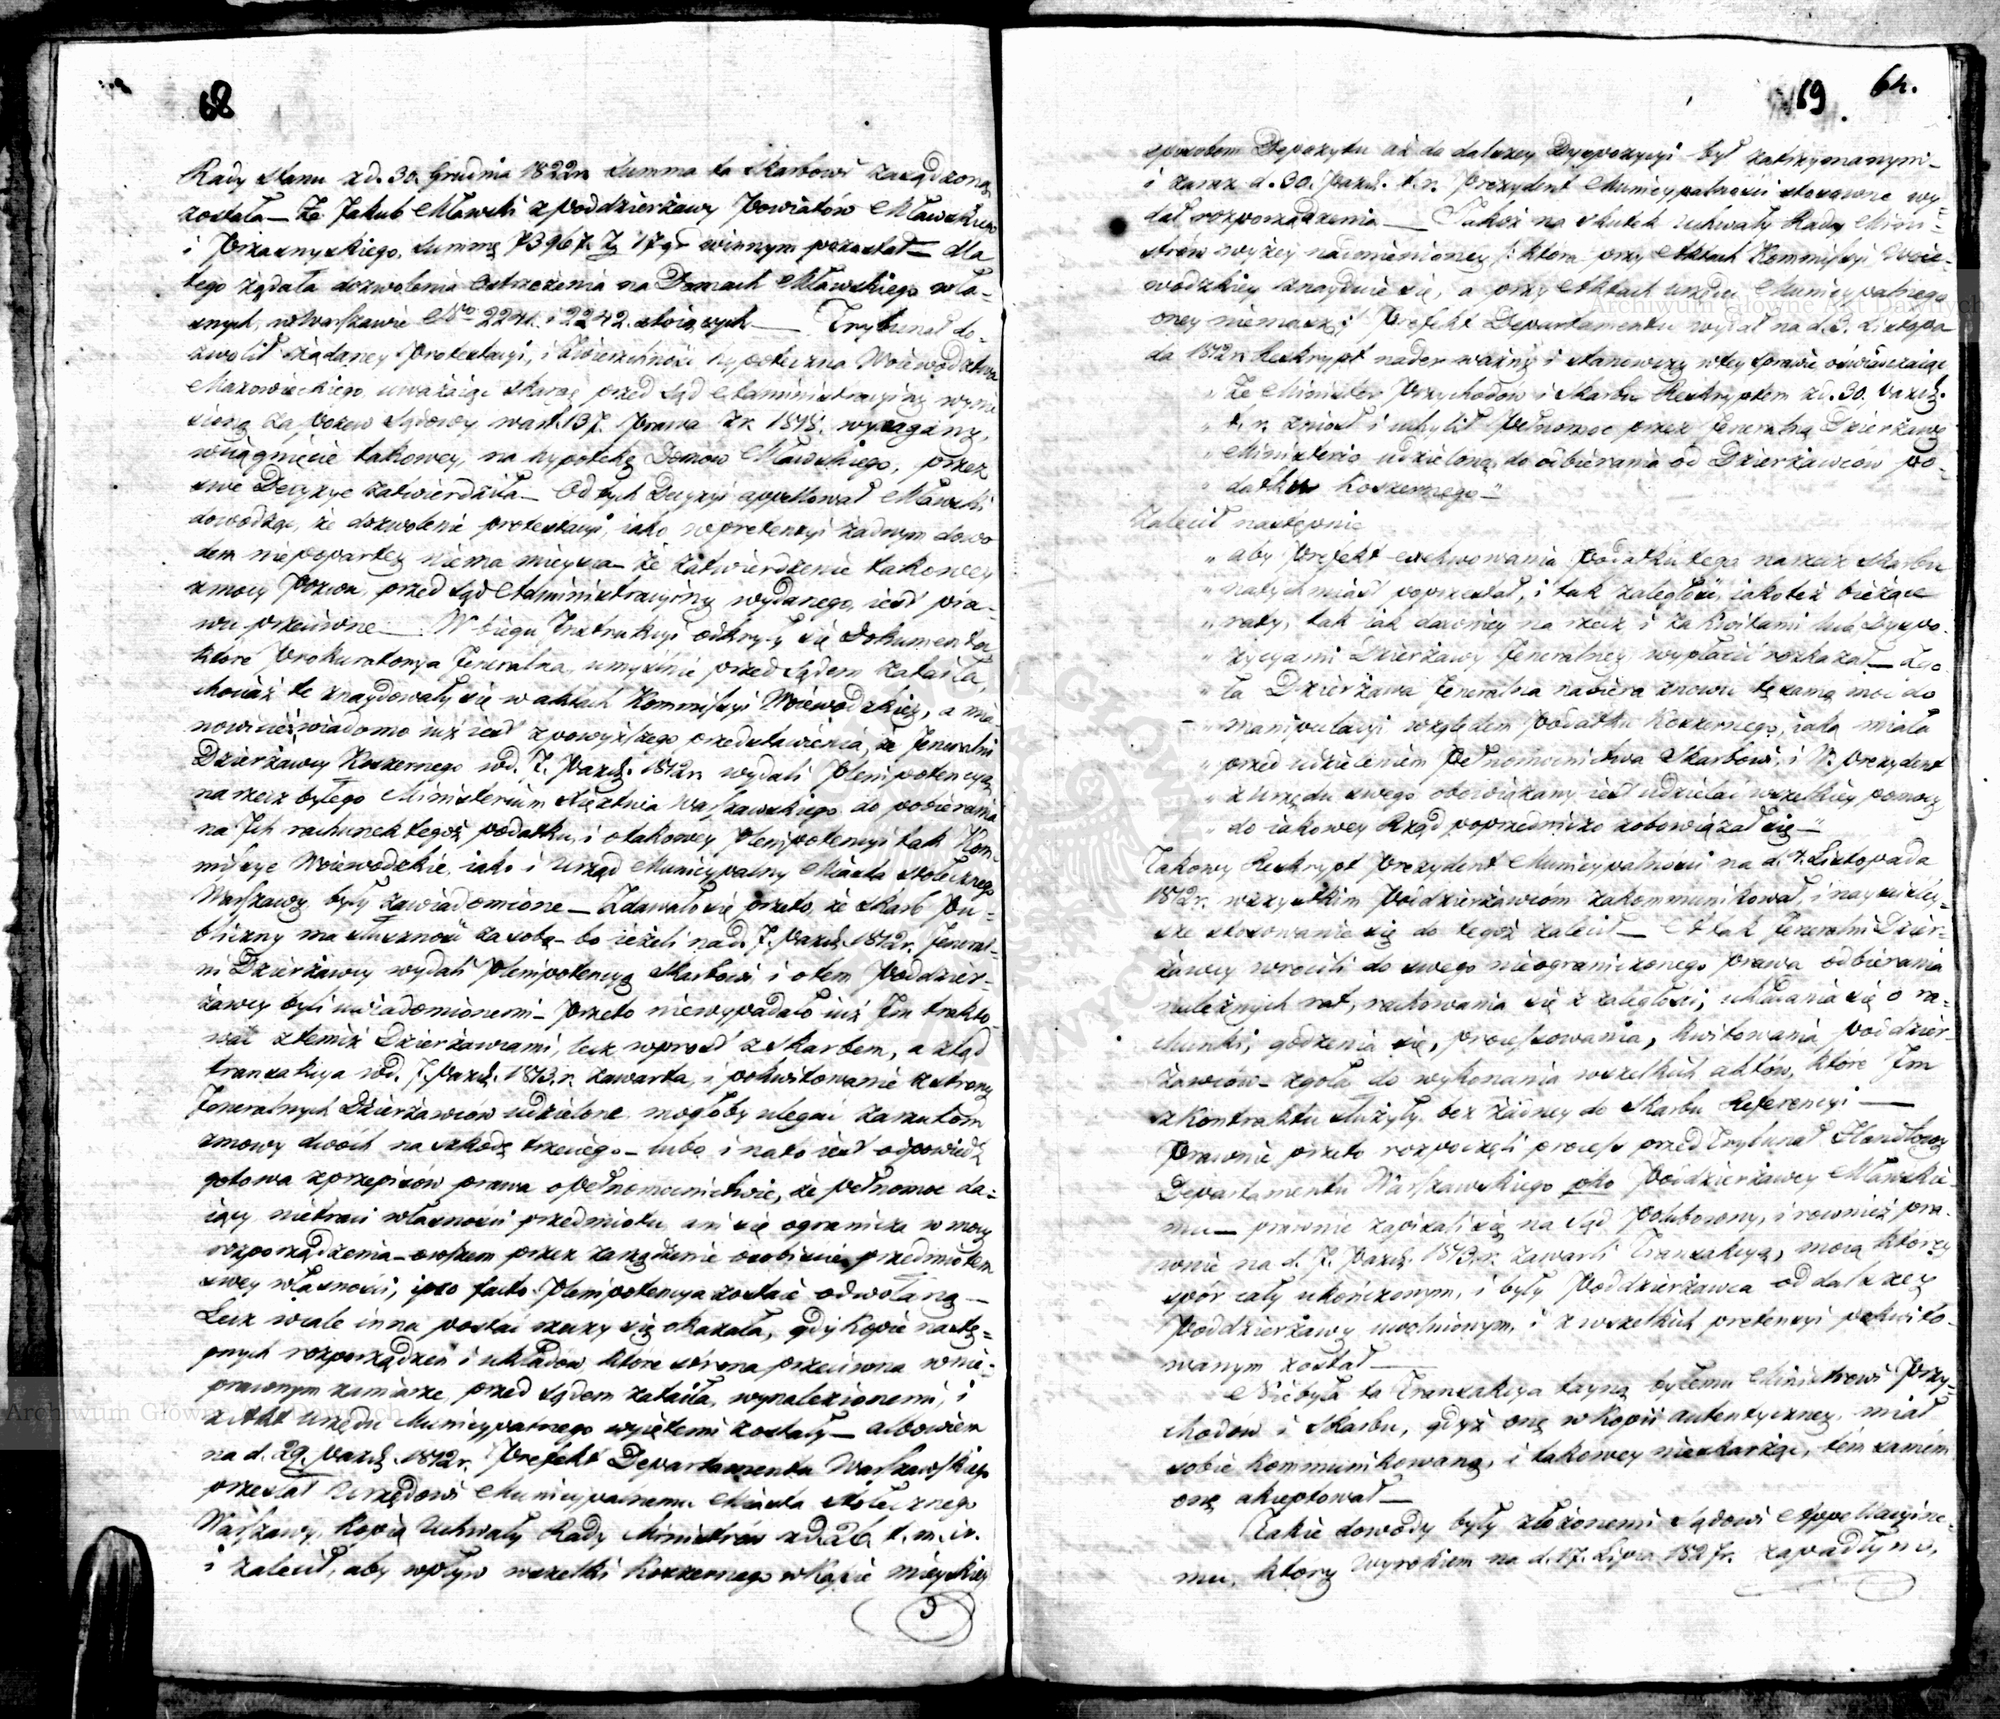 68
Rady Stanu z d. 30. Grudnia 1822 r. Summa ta Skarbowi zasądzoną
została — Że Jakub Mławski z poddzierżawy Powiatów Mławskiego
i Przasnyskiego, Summę 73967 Zł 17 gr winnym pozostał — dla
tego żądała dozwolenia ostrzeżenia na Domach Mławskiego wła-
snych, w Warszawie No 2241. i 2242. stoiących — Trybunał do-
zwolił żądaney Protestacyi, i Zwierzchność hypoteczna Woiewództwa
Mazowieckiego, uważaiąc skargę przed Sąd Administracyiny wynie
sioną za pozew Sądowy w art. 137. Prawa z r. 1818. wymagany,
wciągnięcie takowey, na hypotekę Domów Mławskiego, przez
swe Decyzye zatwierdziła — Od tych Decyzyi appellował Mławski
dowodząc, że dozwolenie protestacyi, iako w pretensyi żadnym dowo
dem niepopartey niema mieysca — że zatwierdzenie takowey
z mocy Pozwu, przed Sąd Administracyiny wydanego, iest pra-
wu przeciwne — W biegu Instrukcyi odkryły się Dokumenta,
które Prokuratorya Jeneralna, umyślnie przed Sądem zataiła,
chociaż te znaydowały się w aktach Kommissyi Woiewódzkiey, a mia-
nowicie: wiadomo iuż iest z powyższego przedstawienia, że Jeneralni
Dzierżawcy Koszernego pod d. 7. Paźdz. 1812 r. wydali Plenipotencyą
na rzecz byłego Ministerium Xięztwa Warszawskiego do pobierania
na Ich rachunek tegoż podatku, i o takowey Plenipotencyi tak Kom-
missye Woiewódzkie, iako i Urząd Municypalny Miasta Stołecznego
Warszawy były zawiadomione — Zdawało się przeto, że Skarb Pu-
bliczny ma słuszność za sobą — bo ieżeli na d. 7. Paźdz. 1812 r. Jeneral-
ni Dzierżawcy wydali Plenipotencyą Skarbowi i o tem Poddzier-
żawcy byli uwiadomionemi — przeto niewypadało iuż Im trakto-
wać z temiż Dzierżawcami, lecz wprost z Skarbem, a ztąd
tranzakcya pod d. 7. Paźdz. 1813. r. zawarta, i pokwitowanie ze strony
Jeneralnych Dzierżawców udzielone mogłoby ulegać zarzutom
zmowy dwóch na szkodę trzeciego — lubo i na to iest odpowiedź
gotowa z przepisów prawa o pełnomocnictwie, że pełnomoc da-
iący nietraci własności przedmiotu, ani się ogranicza w mocy
rozporządzenia — owszem przez zarządzenie osobiście przedmiotem
swey własności, ipso facto Plenipotencya zostaie odwołaną —
Lecz wcale inna postać rzeczy się okazała, gdy kopie nastę-
pnych rozporządzeń i układów które strona przeciwna w nie-
prawnym zamiarze, przed Sądem zataiła, wynalezionemi, i
z Akt Urzędu Municypalnego wyiętemi zostały — albowiem
na d. 29. Paźdz. 1812 r. Prefekt Departamentu Warszawskiego
przesłał Urzędowi Municypalnemu Miasta Stołecznego
Warszawy, kopią Uchwały Rady Ministrów z d. 26. t. m. i r.
i zalecił, aby wpływ wszelki Koszernego w Kassie mieyskiey
69. 64.
sposobem Depozytu aż do dalszey Dyspozycyi był zatrzymanym —
i zaraz d. 30. Paźdz. t. r. Prezydent Municypalności stosowne wy-
dał rozporządzenia — Takoż na skutek Uchwały Rady Mini-
strów wyżey nadmienioney /: która przy Aktach Kommissyi Woie-
wódzkiey znayduie się, a przy Aktach Urzędu Municypalnego
oney niemasz :/ Prefekt Departamentu wydał na d. 3. Listopa
da 1812 r. Reskrypt nader ważny i stanowczy w tey sprawie, oświadczaiąc,
" Że Minister Przychodów i Skarbu Reskryptem z d. 30. Paźdz.
" t. r. zniosł i uchylił Pełnomoc przez Jeneralną Dzierżawę
" Ministerio udzieloną, do odbierania od Dzierżawców Po-
" datku Koszernego —"
Zalecił następnie
" aby Prefekt exekwowania Podatku tego na rzecz Skarbu
" natychmiast poprzestał, i tak zaległość, iakoteż bieżące
" raty, tak iak dawniey na rzecz i za kwitami lub Dyspo-
" zycyami Dzierżawy Jeneralney wypłacić rozkazał — Zgo
" ła Dzierżawa Jeneralna nabiera znowu tę samą moc do
" manipulacyi względem Podatku Koszernego, iaką miała
" przed udzieleniem Pełnomocnictwa Skarbowi, i W. Prezydent
" z urzędu swego obowiązany iest udzielać wszelkiey pomocy
" do iakowey Rząd poprzedniczo zobowiązał się —"
Takowy Reskrypt Prezydent Municypalności na d. 4. Listopada
1812 r. wszystkim Poddzierżawcom zakommunikował, i nayściśley-
sze stosowanie się do tegoż zalecił — A tak Jeneralni Dzier-
żawcy wrócili do swego nieograniczonego prawa odbierania
należnych rat, rachowania się z zaległości, układania się o ra-
chunki, godzenia się, processowania, kwitowania Poddzier-
żawców — zgoła do wykonania wszelkich aktów, które Im
z Kontraktu służyły bez żadney do Skarbu Referencyi —
Prawnie przeto rozpoczęli process przed Trybunał Handlowy
Departamentu Warszawskiego pko Poddzierżawcy Mławskie-
mu — prawnie zapisali się na Sąd Polubowny, i również pra-
wnie na d. 7. Paźdz. 1813. r. zawarli Tranzakcyą, mocą którey
spór cały ukończonym, i były Poddzierżawca od dalszey
Poddzierżawy uwolnionym, i z wszelkich pretensyi pokwito-
wanym został —
Niebyła ta Tranzakcya tayną byłemu Ministrowi Przy-
chodów i Skarbu, gdyż onę w kopii autentyczney, miał
sobie kommunikowaną, i takowey nieskarżąc, tém samém
onę akceptował —
Takie dowody były złożonemi Sądowi Appellacyine-
mu, który Wyrokiem na d. 17. Lipca 1827 r. zapadłym,